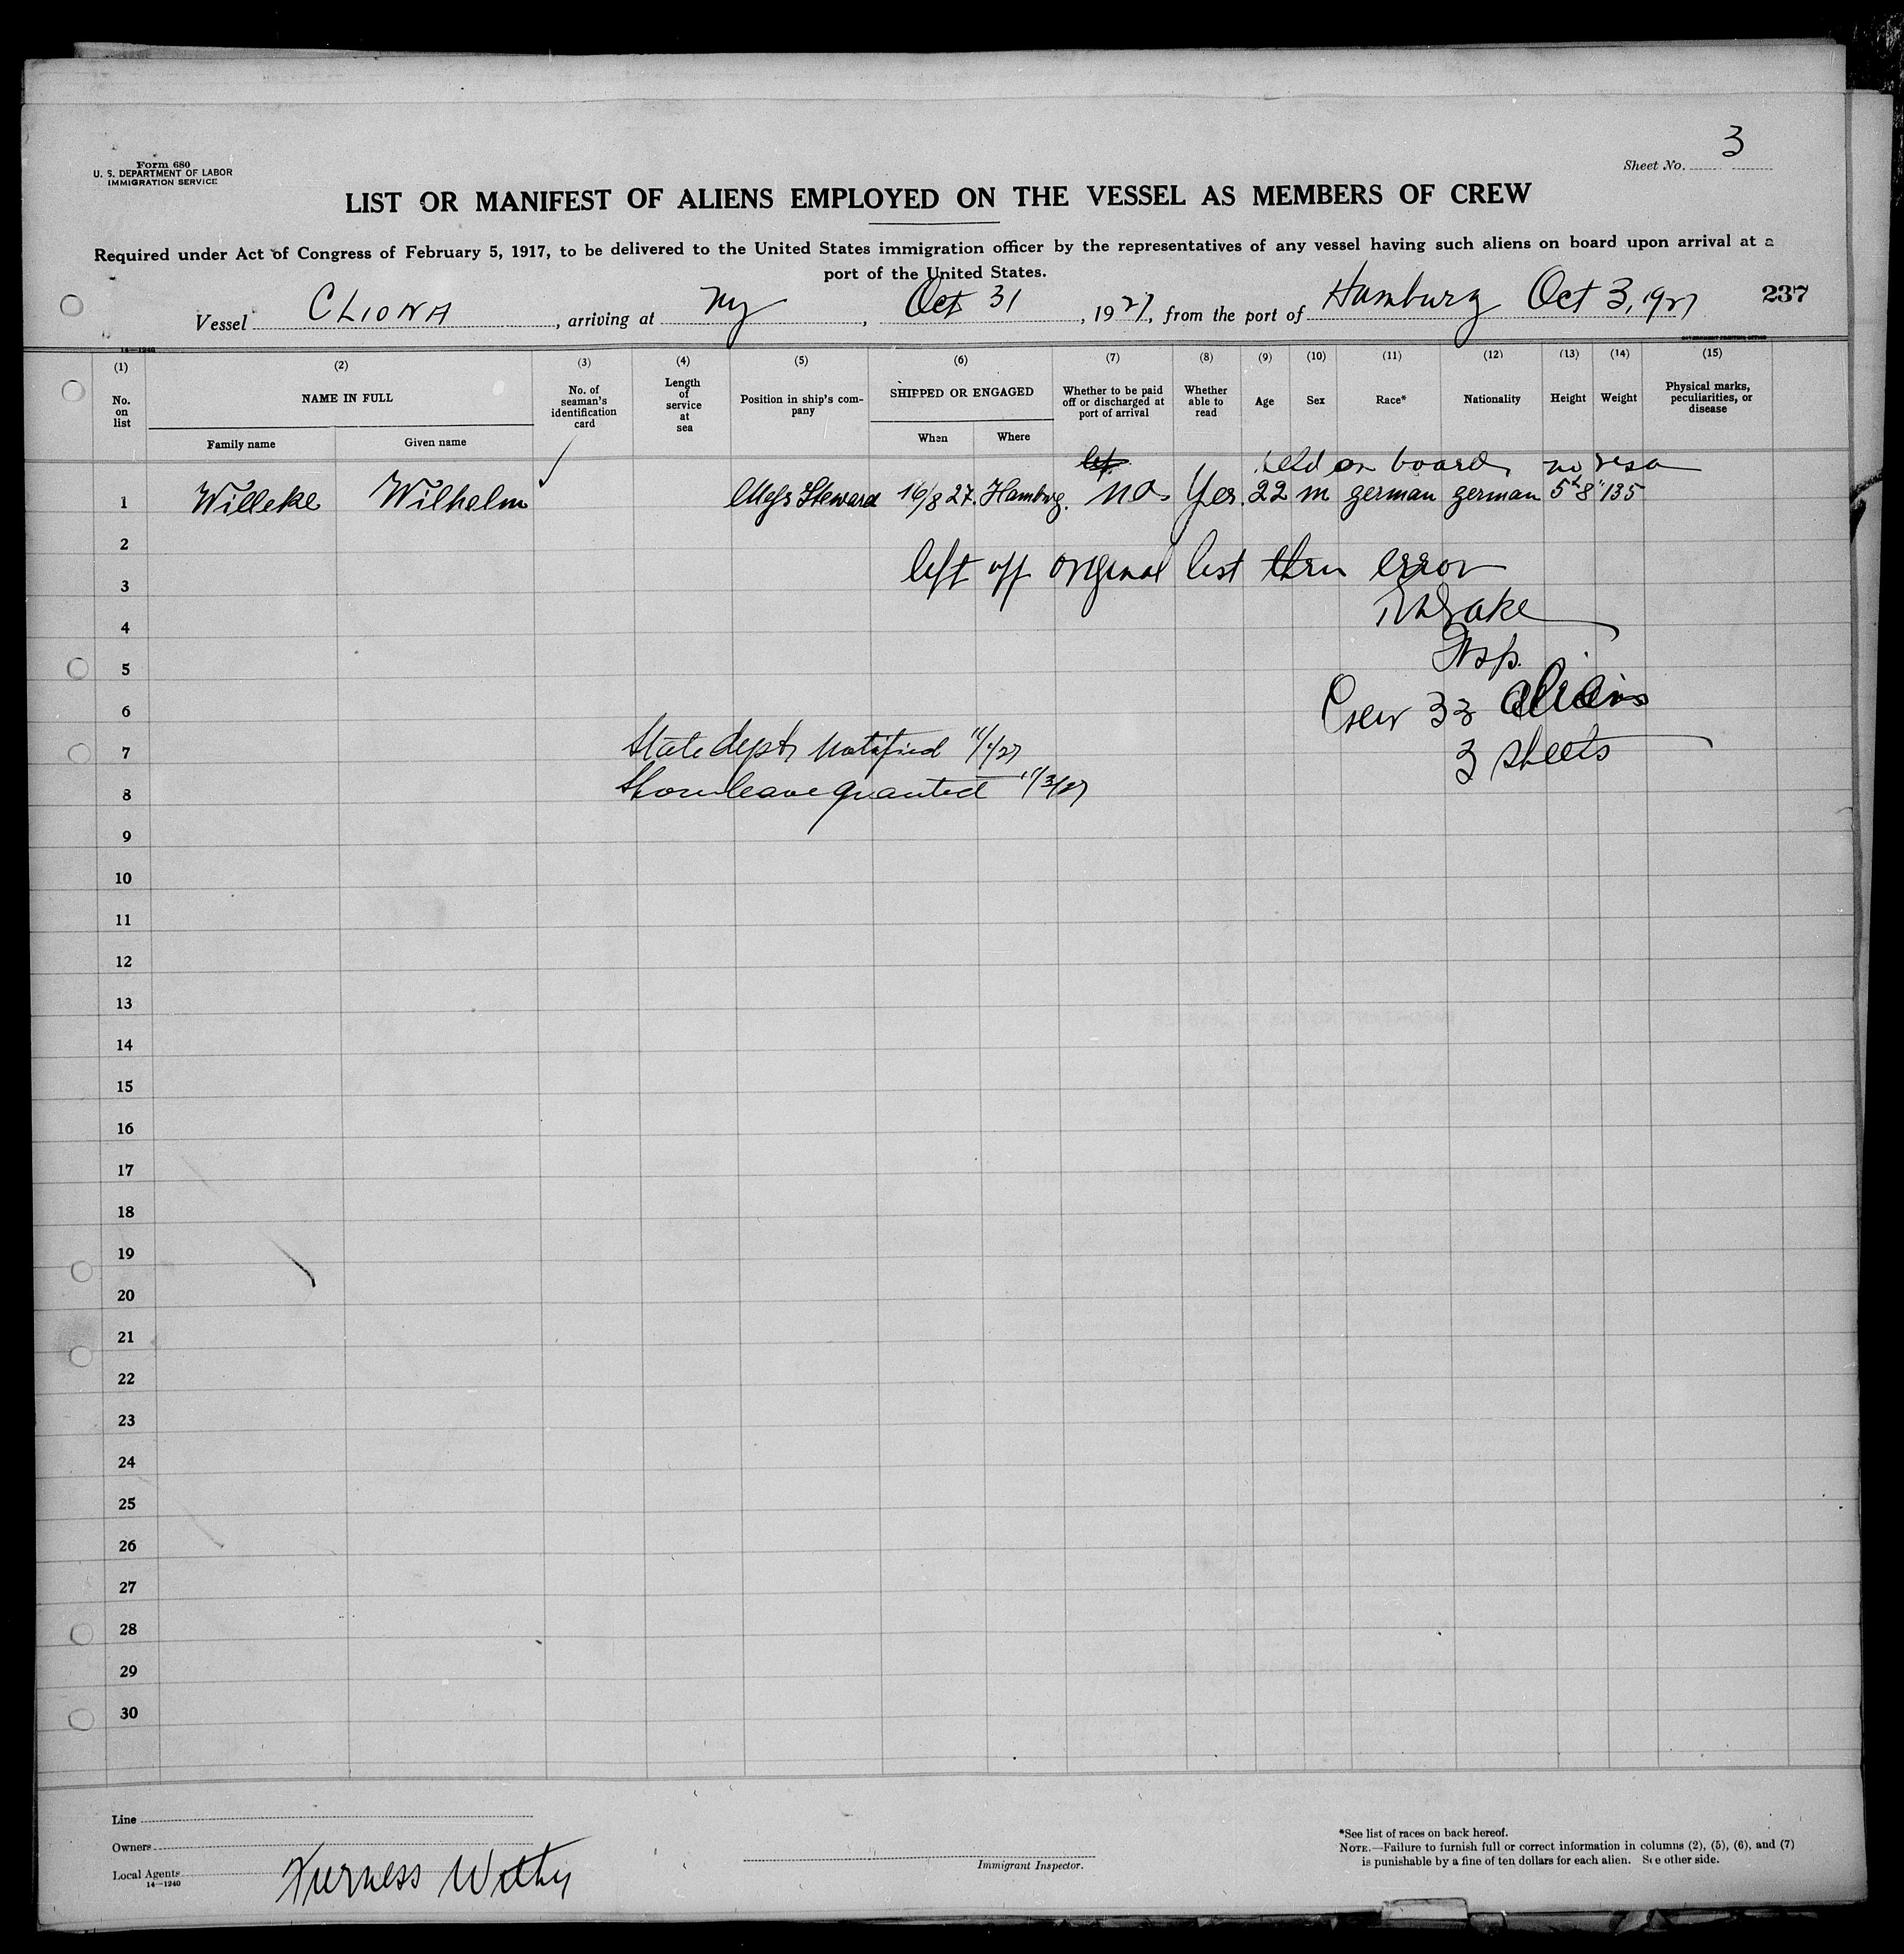 Form 680
U. S. DEPARTMENT OF LABOR
IMMIGRATION SERVICE
Sheet No. 3
LIST OR MANIFEST OF ALIENS EMPLOYED ON THE VESSEL AS MEMBERS OF CREW
Required under Act of Congress of February 5, 1917, to be delivered to the United States immigration officer by the representatives of any vessel having such aliens on board upon arrival at a
port of the United States.
237
Vessel CLIONA, arriving at Ny, Oct 31, 1927, from the port of Hamburg Oct 3, 1927
14—1240
GOVERNMENT PRINTING OFFICE
(1) (2) (3) (4) (5) (6) (7) (8) (9) (10) (11) (12) (13) (14) (15)
No. on list
NAME IN FULL
Family name
Given name
No. of seaman's identification card
Length of service at sea
Position in ship's com-pany
SHIPPED OR ENGAGED
When
Where
Whether to be paid off or discharged at port of arrival
Whether able to read
Age
Sex
Race*
Nationality
Height
Weight
Physical marks, peculiarities, or disease
held on board no visa
1 Willeke Wilhelm Mess Steward 16/8 27. Hamburg. no. Yes. 22 m german german 5' 8" 135
2
left off original list thru error
3
Drake
4
Insp.
5
Crew 33 aliens
6
State dept notified 11/1/27
7
3 sheets
Shore leave granted 11/3/27
8
9
10
11
12
13
14
15
16
17
18
19
20
21
22
23
24
25
26
27
28
29
30
Line
Owners
Local Agents Furness Withy
14—1240
Immigrant Inspector.
*See list of races on back hereof.
NOTE.—Failure to furnish full or correct information in columns (2), (5), (6), and (7)
is punishable by a fine of ten dollars for each alien. See other side.